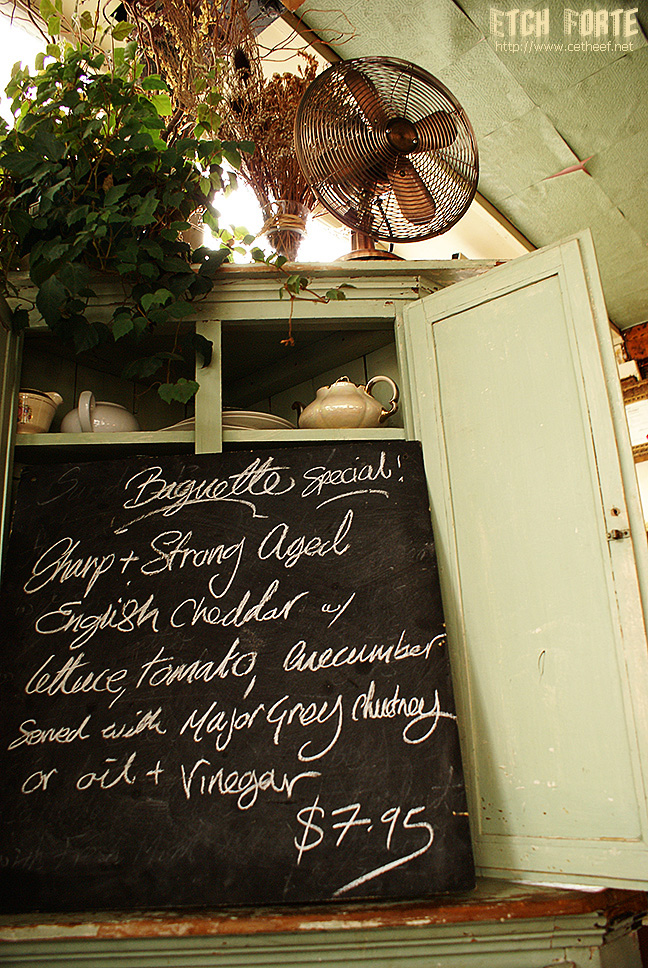 ETCH FORTE
http://www.cetheef.net
Baguette Special!
Sharp + Strong Aged
English Cheddar w/
lettuce, tomato, cucumber.
Served with Major Grey chutney
or oil + Vinegar
$7.95